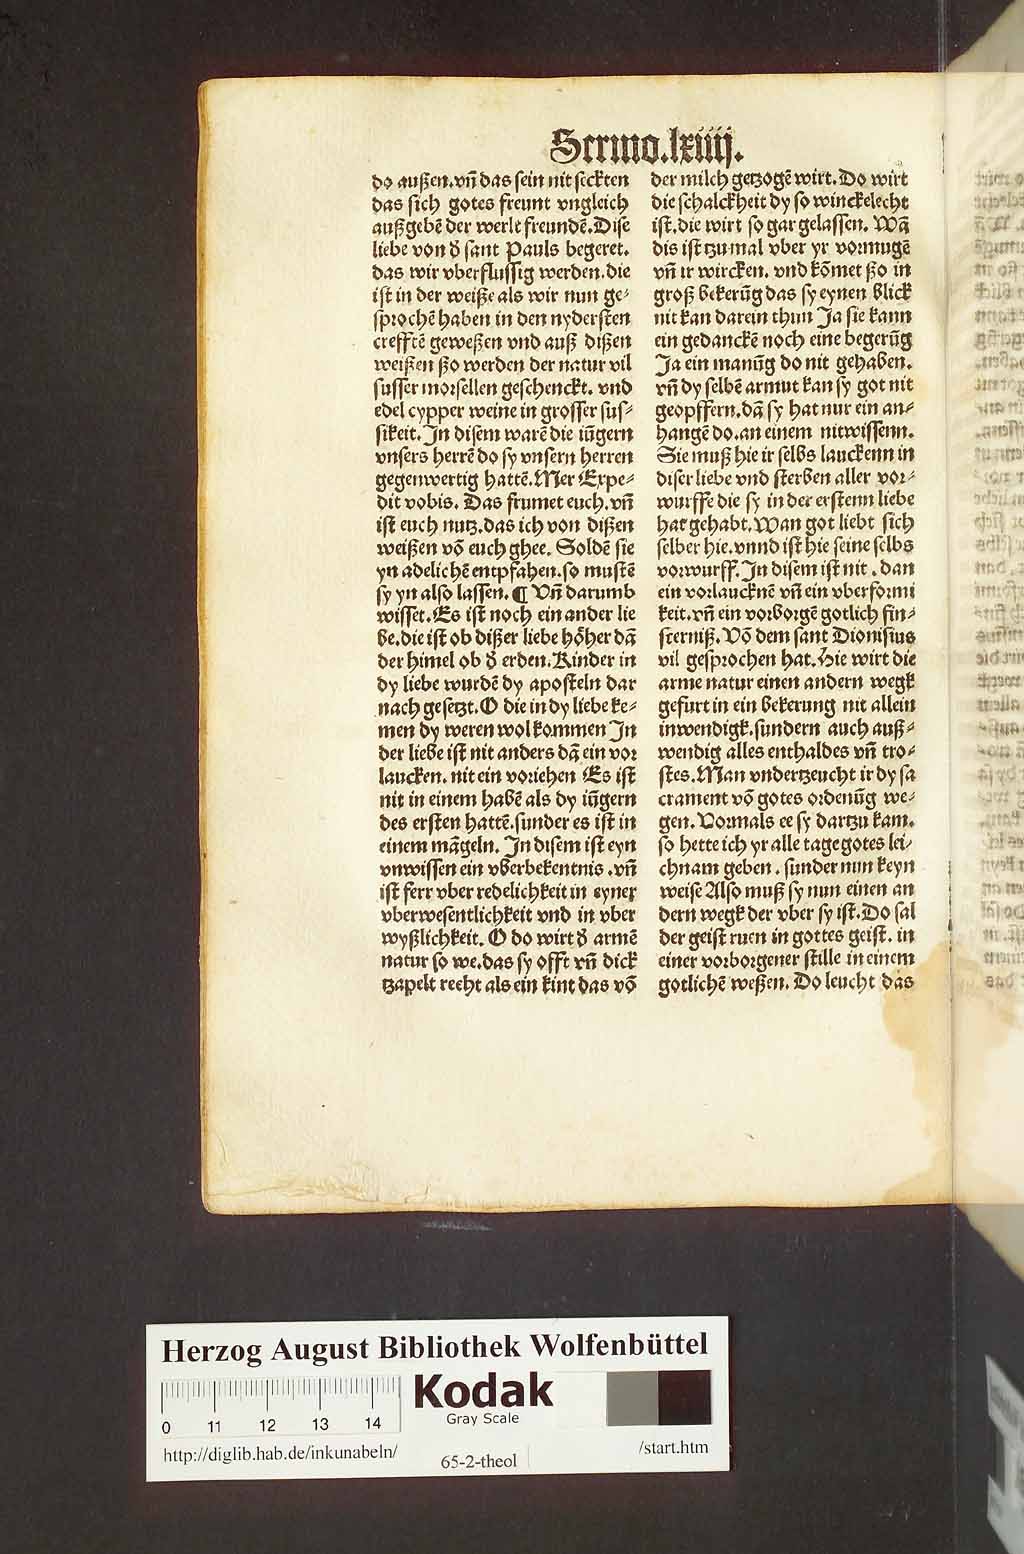 Sermo.lxiiij.
do außen.vn̄ das sein nit seckten
das sich gotes freunt vngleich
außgebē der werlt freundē.Dise
liebe von d̕ sant Pauls begeret.
das wir vberflussig werden.die
ist in der weiße als wir nun ge⸗
sprochē haben in den nydersten
crefftē geweßen vnd auß dißen
weißen ßo werden der natur vil
susser morsellen geschenckt. vnd
edel cypper weine in grosser sus⸗
sikeit.In disem warē die iūgern
vnsers herrē do sy vnsern herren
gegenwertig hattē.Mer Expe⸗
dit vobis. Das frumet euch.vn̄
ist euch nutz.das ich von dißen
weißen vō euch ghee. Soldē sie
yn adelichē entpfahen.so mustē
sy yn also lassen.¶ Vn̄ darumb
wisset.Es ist noch ein ander lie
be.die ist ob dißer liebe höher dā
der himel ob d̕ erden.Kinder in
dy liebe wurdē dy aposteln dar
nach gesetzt.O die in dy liebe ke⸗
men dy weren wol kommen In
der liebe ist nit anders dā ein vor
laucken. nit ein voriehen Es ist
nit in einem habē als dy iūgern
des ersten hattē.sunder es ist in
einem māgeln. In disem ist eyn
vnwissen ein vberbekentnis .vn̄
ist ferr vber redelichkeit in eyner
vberwesentlichkeit vnd in vber
wyßlichkeit. O do wirt d̕ armē
natur so we.das sy offt vn̄ dick
tzapelt recht als ein kint das vō
der milch getzogē wirt.Do wirt
die schalckheit dy so winckelecht
ist.die wirt so gar gelassen. Wā
dis ist tzumal vber yr vormugē
vn̄ ir wircken. vnd kōmet ßo in
groß bekerūg das sy eynen blick
nit kan darein thun Ja sie kann
ein gedanckē noch eine begerūg
Ja ein manūg do nit gehaben.
vn̄ dy selbē armut kan sy got nit
geopffern.dā sy hat nur ein an⸗
hangē do.an einem nitwissenn.
Sie muß hie ir selbs lauckenn in
diser liebe vnd sterben aller vor⸗
wurffe die sy in der erstenn liebe
hat gehabt.Wan got liebt sich
selber hie.vnnd ist hie seine selbs
vorwurff.In disem ist nit . dan
ein vorlaucknē vn̄ ein vberformi
keit.vn̄ ein vorborgē gotlich fin⸗
sterniß. Vō dem sant Dionisius
vil gesprochen hat.Hie wirt die
arme natur einen andern wegk
gefurt in ein bekerung nit allein
inwendigk.sundern auch auß⸗
wendig alles enthaldes vn̄ tro⸗
stes.Man vndertzeucht ir dy sa
crament vō gotes ordenūg we⸗
gen. Vormals ee sy dartzu kam.
so hette ich yr alle tage gotes lei⸗
chnam geben . sunder nun keyn
weise Also muß sy nun einen an
dern wegk der vber sy ist.Do sal
der geist ruen in gottes geist. in
einer vorborgener stille in einem
gotlichē weßen. Do leucht das
Herzog August Bibliothek Wolfenbüttel
Kodak
Gray Scale
0 11 12 13 14
http://diglib.hab.de/inkunabeln/
65-2-theol
/start.htm